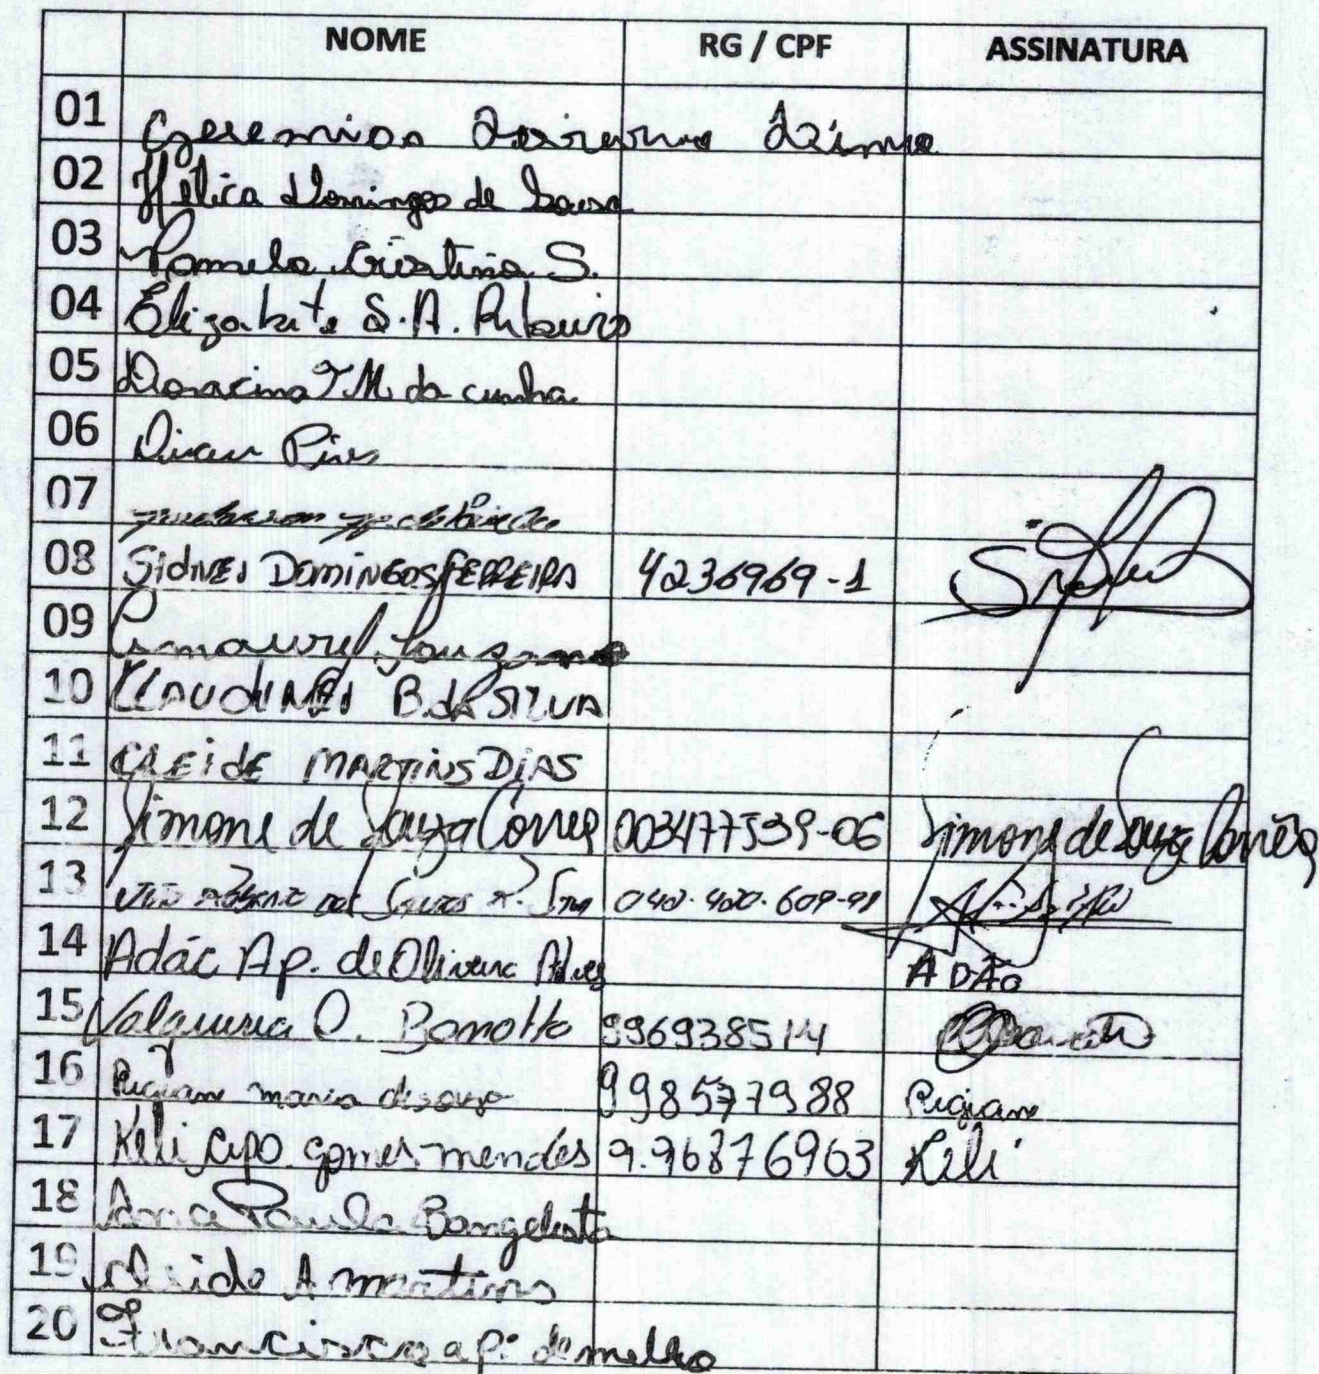 NOME RG / CPF ASSINATURA
01
02 Hélica Domingos de Sousa
03 Pamela Cristina S.
04 Elizabete S.A. Ribeiro
05 Doracina T.M. da cunha
06 Dirceu Pires
07
08 SIDNEI DOMINGOS FERREIRA 4236969-1
09 Amaury
10 CLAUDINEI B. da SILVA
11 CLEIDE MARTINS DIAS
12 Simone de Souza Correa 003477539-06 Simone de Souza Corrêa
13 dos Santos
14 Adão Ap. de Oliveira Alves ADÃO
15 Valquiria O. Bonotto 996938514
16 Rigiane maria de souza 998577988 Rigiane
17 Keli cipo gomes mendes 9.96876963 Keli
18 Ana Paula Bangelista
19 A martins
20 Francisca ap. de mello